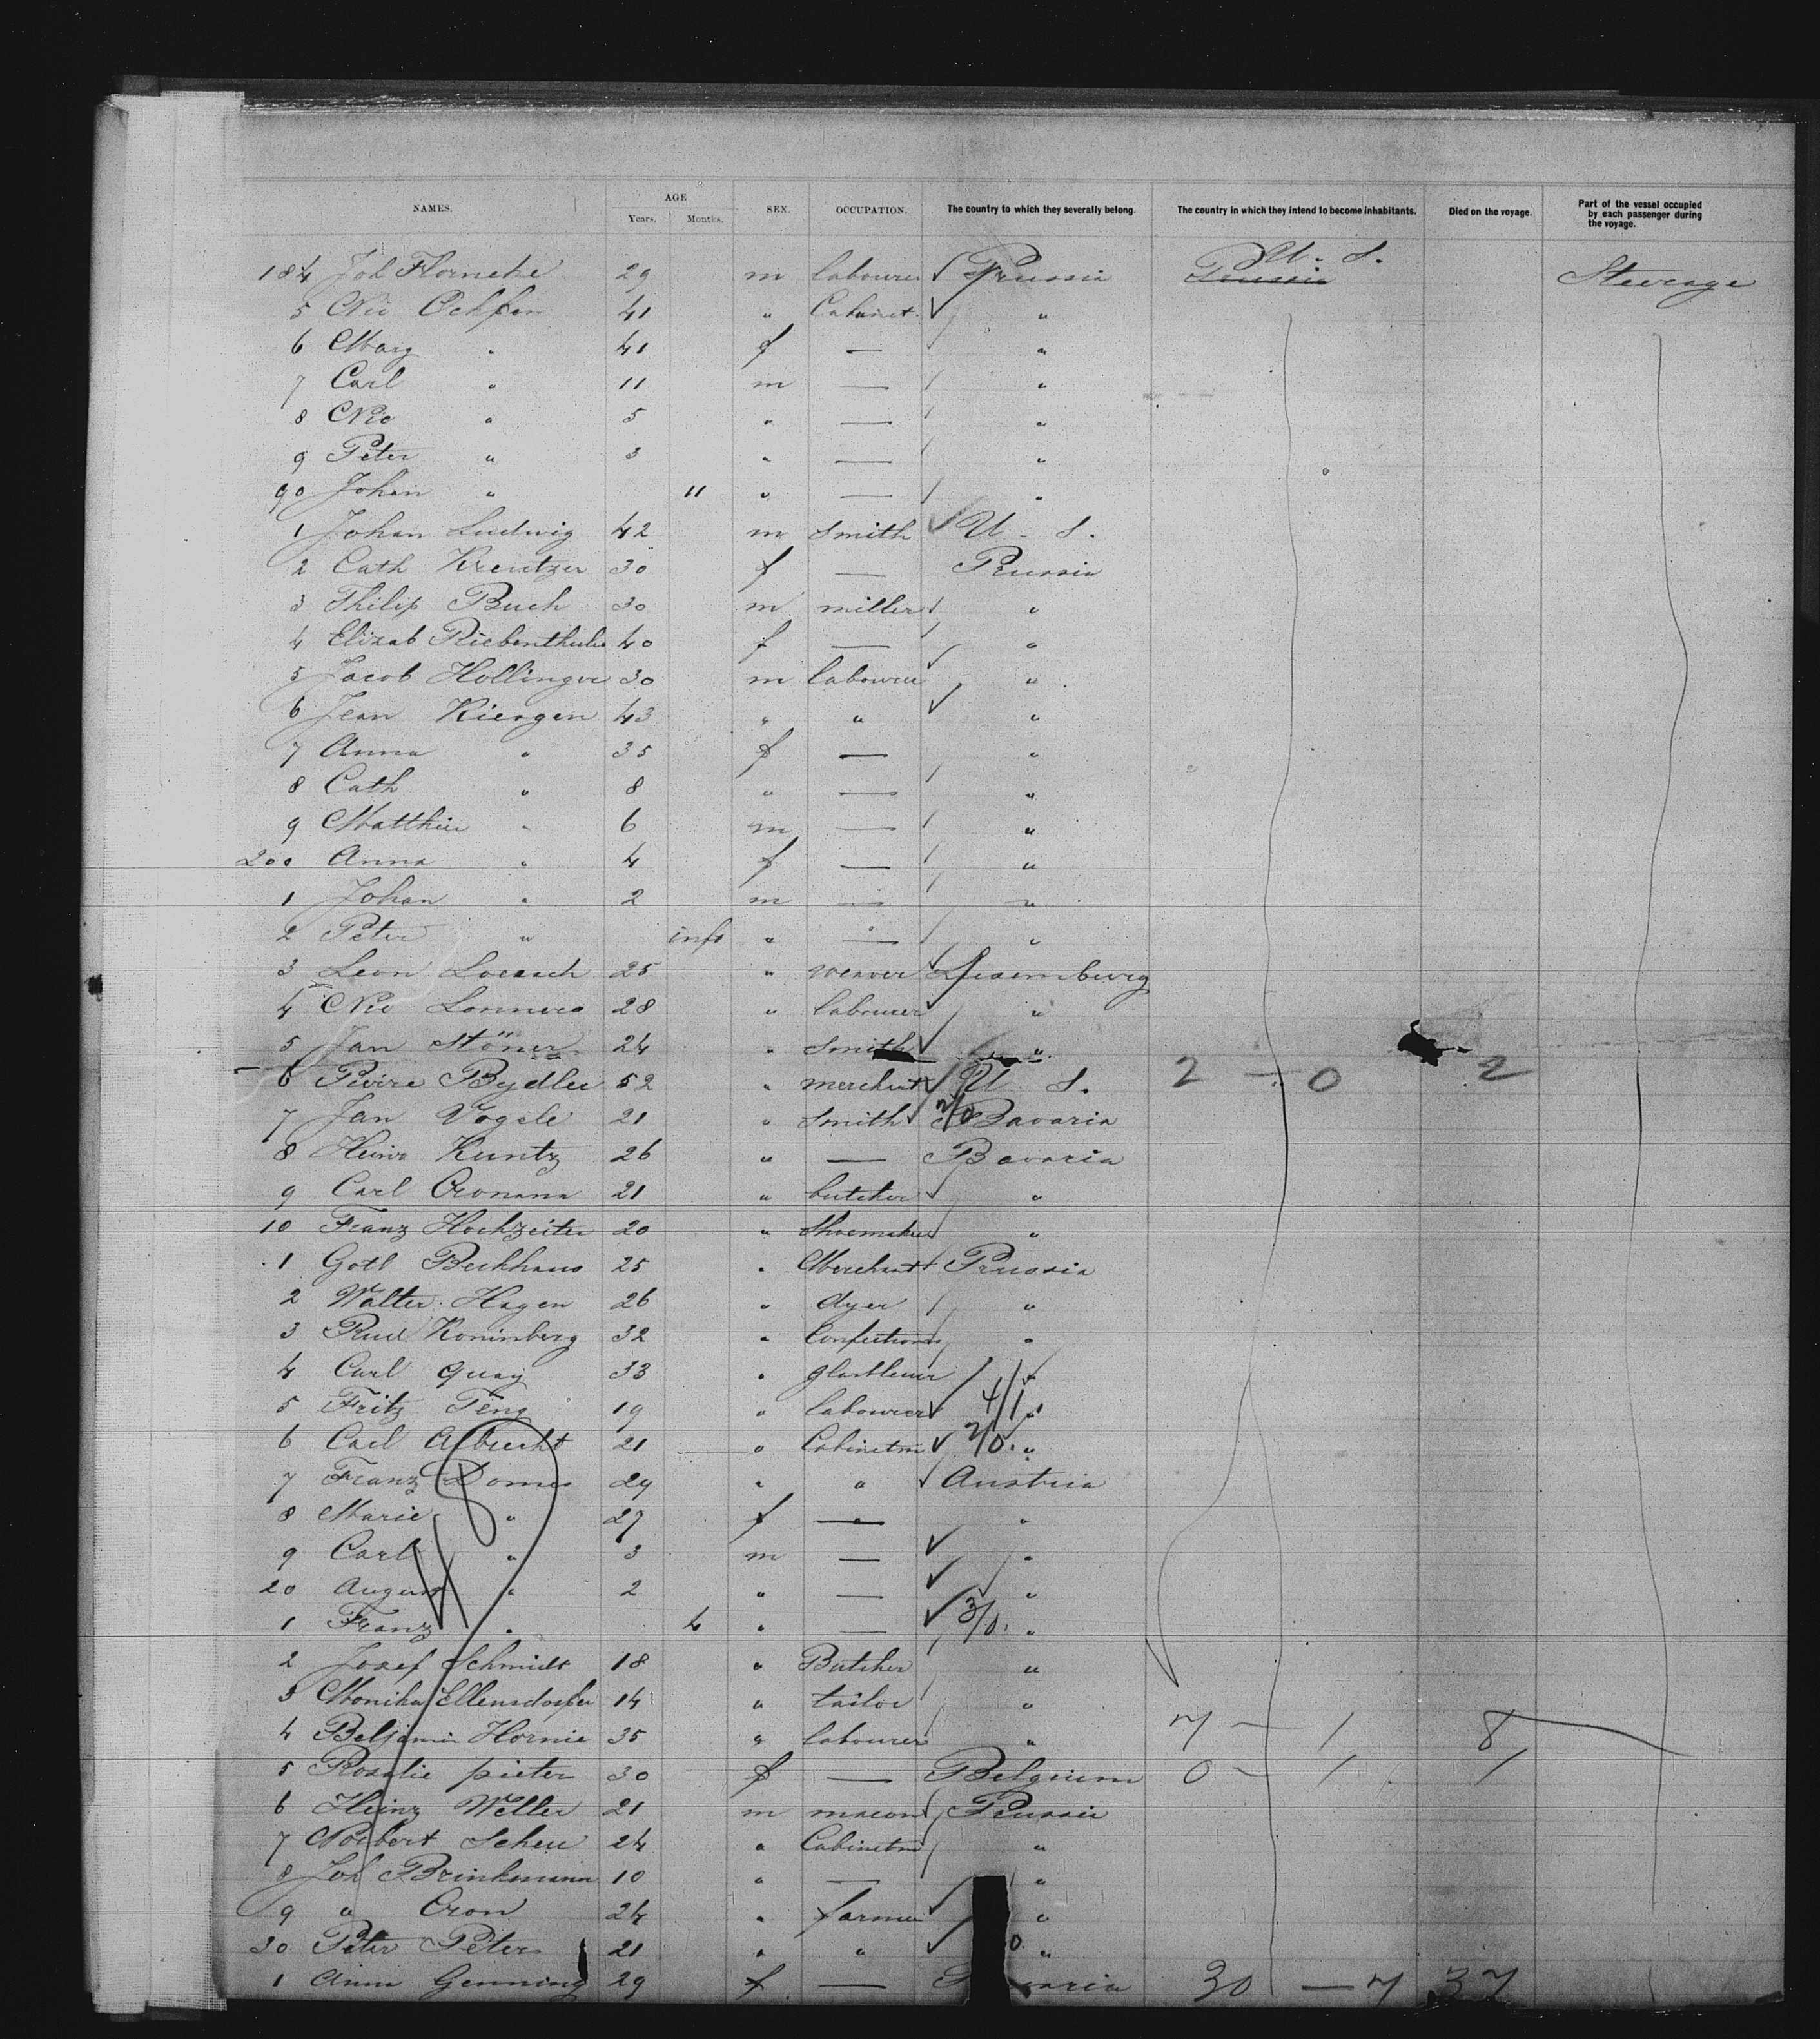 NAMES. AGE Years. Months. SEX. OCCUPATION. The country to which they severally belong. The country in which they intend to become inhabitants. Died on the voyage. Part of the vessel occupied by each passenger during the voyage.
184 Joh 29 m labourer Prussia Prussia U. S. Steerage
5 Nic 41 " Cabinet. "
6 Marg " 41 f — "
7 Carl " 11 m — "
8 Nic " 5 " — "
9 Peter " 3 " — "
90 Johan " 11 " — "
1 Johan Ludwig 42 m Smith U. S.
2 Cath Kreutzer 30 f — Prussia
3 Philip Buch 30 m miller "
4 Elizab 40 f — "
5 Jacob Hollinger 30 m labourer "
6 Jean 43 " " "
7 Anna " 35 f — "
8 Cath " 8 " — "
9 Matthias " 6 m — "
200 Anna " 4 f — "
1 Johan " 2 m — "
2 Peter " inft " — "
3 Leon 25 " weaver Luxemburg
4 Nic 28 " labourer "
5 Jan Stöner 24 " Smith "
6 Pierre Bydler 52 " merchant U. S. 2 – 0 2
7 Jan Vogele 21 " Smith 2/0 Bavaria
8 Heinr Kuntz 26 " — Bavaria
9 Carl 21 " butcher "
10 Franz Hochzeiter 20 " Shoemaker "
1 Gotl Beckhaus 25 " Merchant Prussia
2 Walter Hagen 26 " dyer "
3 Rud Koninberg 32 " Confectioner "
4 Carl Quay 33 " "
5 Fritz 19 " labourer 4/1 "
6 Carl Albrecht 21 " Cabinetm 2/0. "
7 Franz Domes 29 " " Austria
8 Marie " 27 f — "
9 Carl " 3 m — "
20 August " 2 " — "
1 Franz " 4 " — 3/0. "
2 Josef Schmidt 18 " Butcher "
3 Monika Ellensdorfer 14 " tailor "
4 Hornie 35 " labourer " 7 – 1 8
5 Rosalie pieter 30 f — Belgium 0 – 1 1
6 Heinz Weller 21 m mason Prussia
7 Norbert Scheu 24 " Cabinetm "
8 Joh Brinkmann 10 " — "
9 " Cron 24 " farmer "
30 Peter Peters 21 " " 0. "
1 Anna Genning 29 f — 30 – 7 37